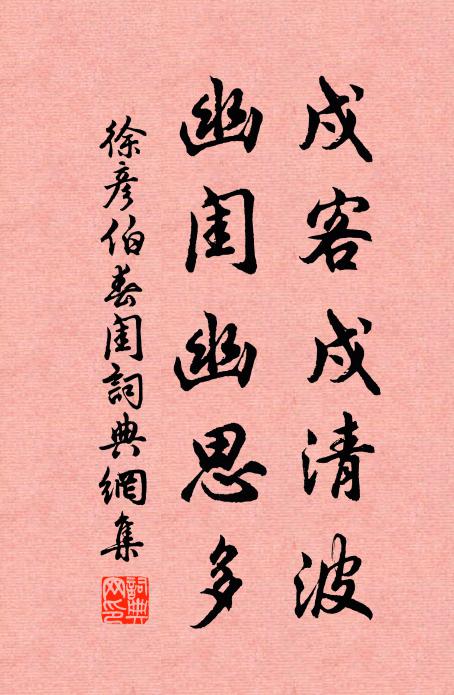 戍客戍清波
幽闺幽思多
徐彦伯春闺詞典網集
詞典網印